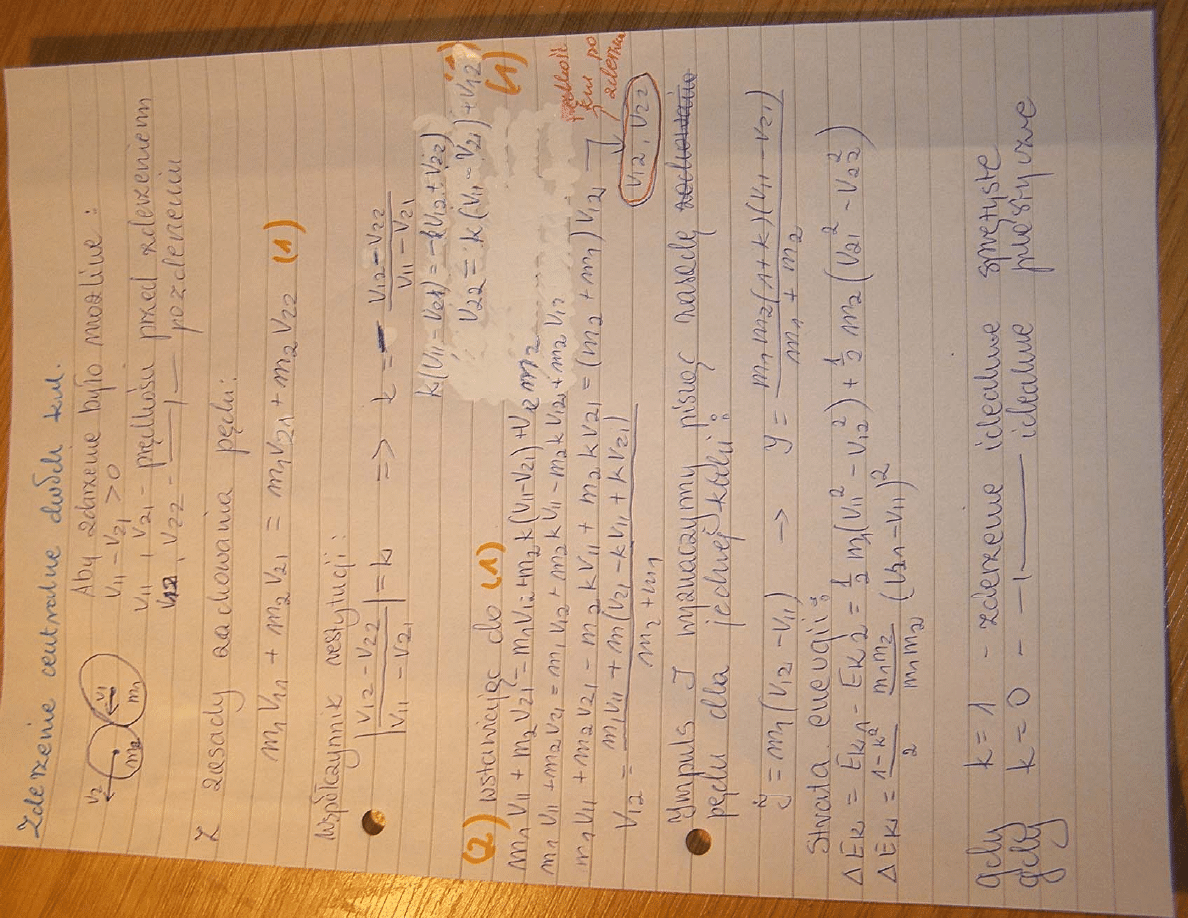 Zderzenie centralne dwóch kul.
Aby zdarzenie było możliwe:
V11 - V21 > 0
V11, V21 - prędkości przed zderzeniem
V12, V22 - —||— po zderzeniu
V2 m2 V1 m1
Z zasady zachowania pędu:
m1V11 + m2V21 = m1V21 + m2V22 (1)
Współczynnik restytucji:
|V12 - V22| / |V11 - V21| = k => k = - (V12 - V22) / (V11 - V21)
k(V11 - V21) = -(V12 + V22)
V22 = k(V11 - V21) + V12 (1)
(2) wstawiając do (1)
m1V11 + m2V21 = m1V12 + m2k(V11 - V21) + V12 m2
m1V11 + m2V21 = m1V12 + m2kV11 - m2kV21 + m2V12
m1V11 + m2V21 - m2kV11 + m2kV21 = (m2 + m1)V12
V12 = (m1V11 + m(V21 - kV11 + kV21)) / (m2 + m1)
prędkość
kul po
zderzeniu
V12, V22
Impuls J wyznaczymy pisząc zasadę
pędu dla jednej kuli:
J = m1(V12 - V11) → J = (m1m2(1+k)(V11 - V21)) / (m1 + m2)
Strata energii:
ΔEk = Ek1 - Ek2 = 1/2 m1(V11² - V12²) + 1/2 m2(V21² - V22²)
ΔEk = (1-k²)/2 (m1m2)/(m1m2) (V21 - V11)²
gdy k = 1 - zderzenie idealnie sprężyste
gdy k = 0 - —||— idealnie plastyczne